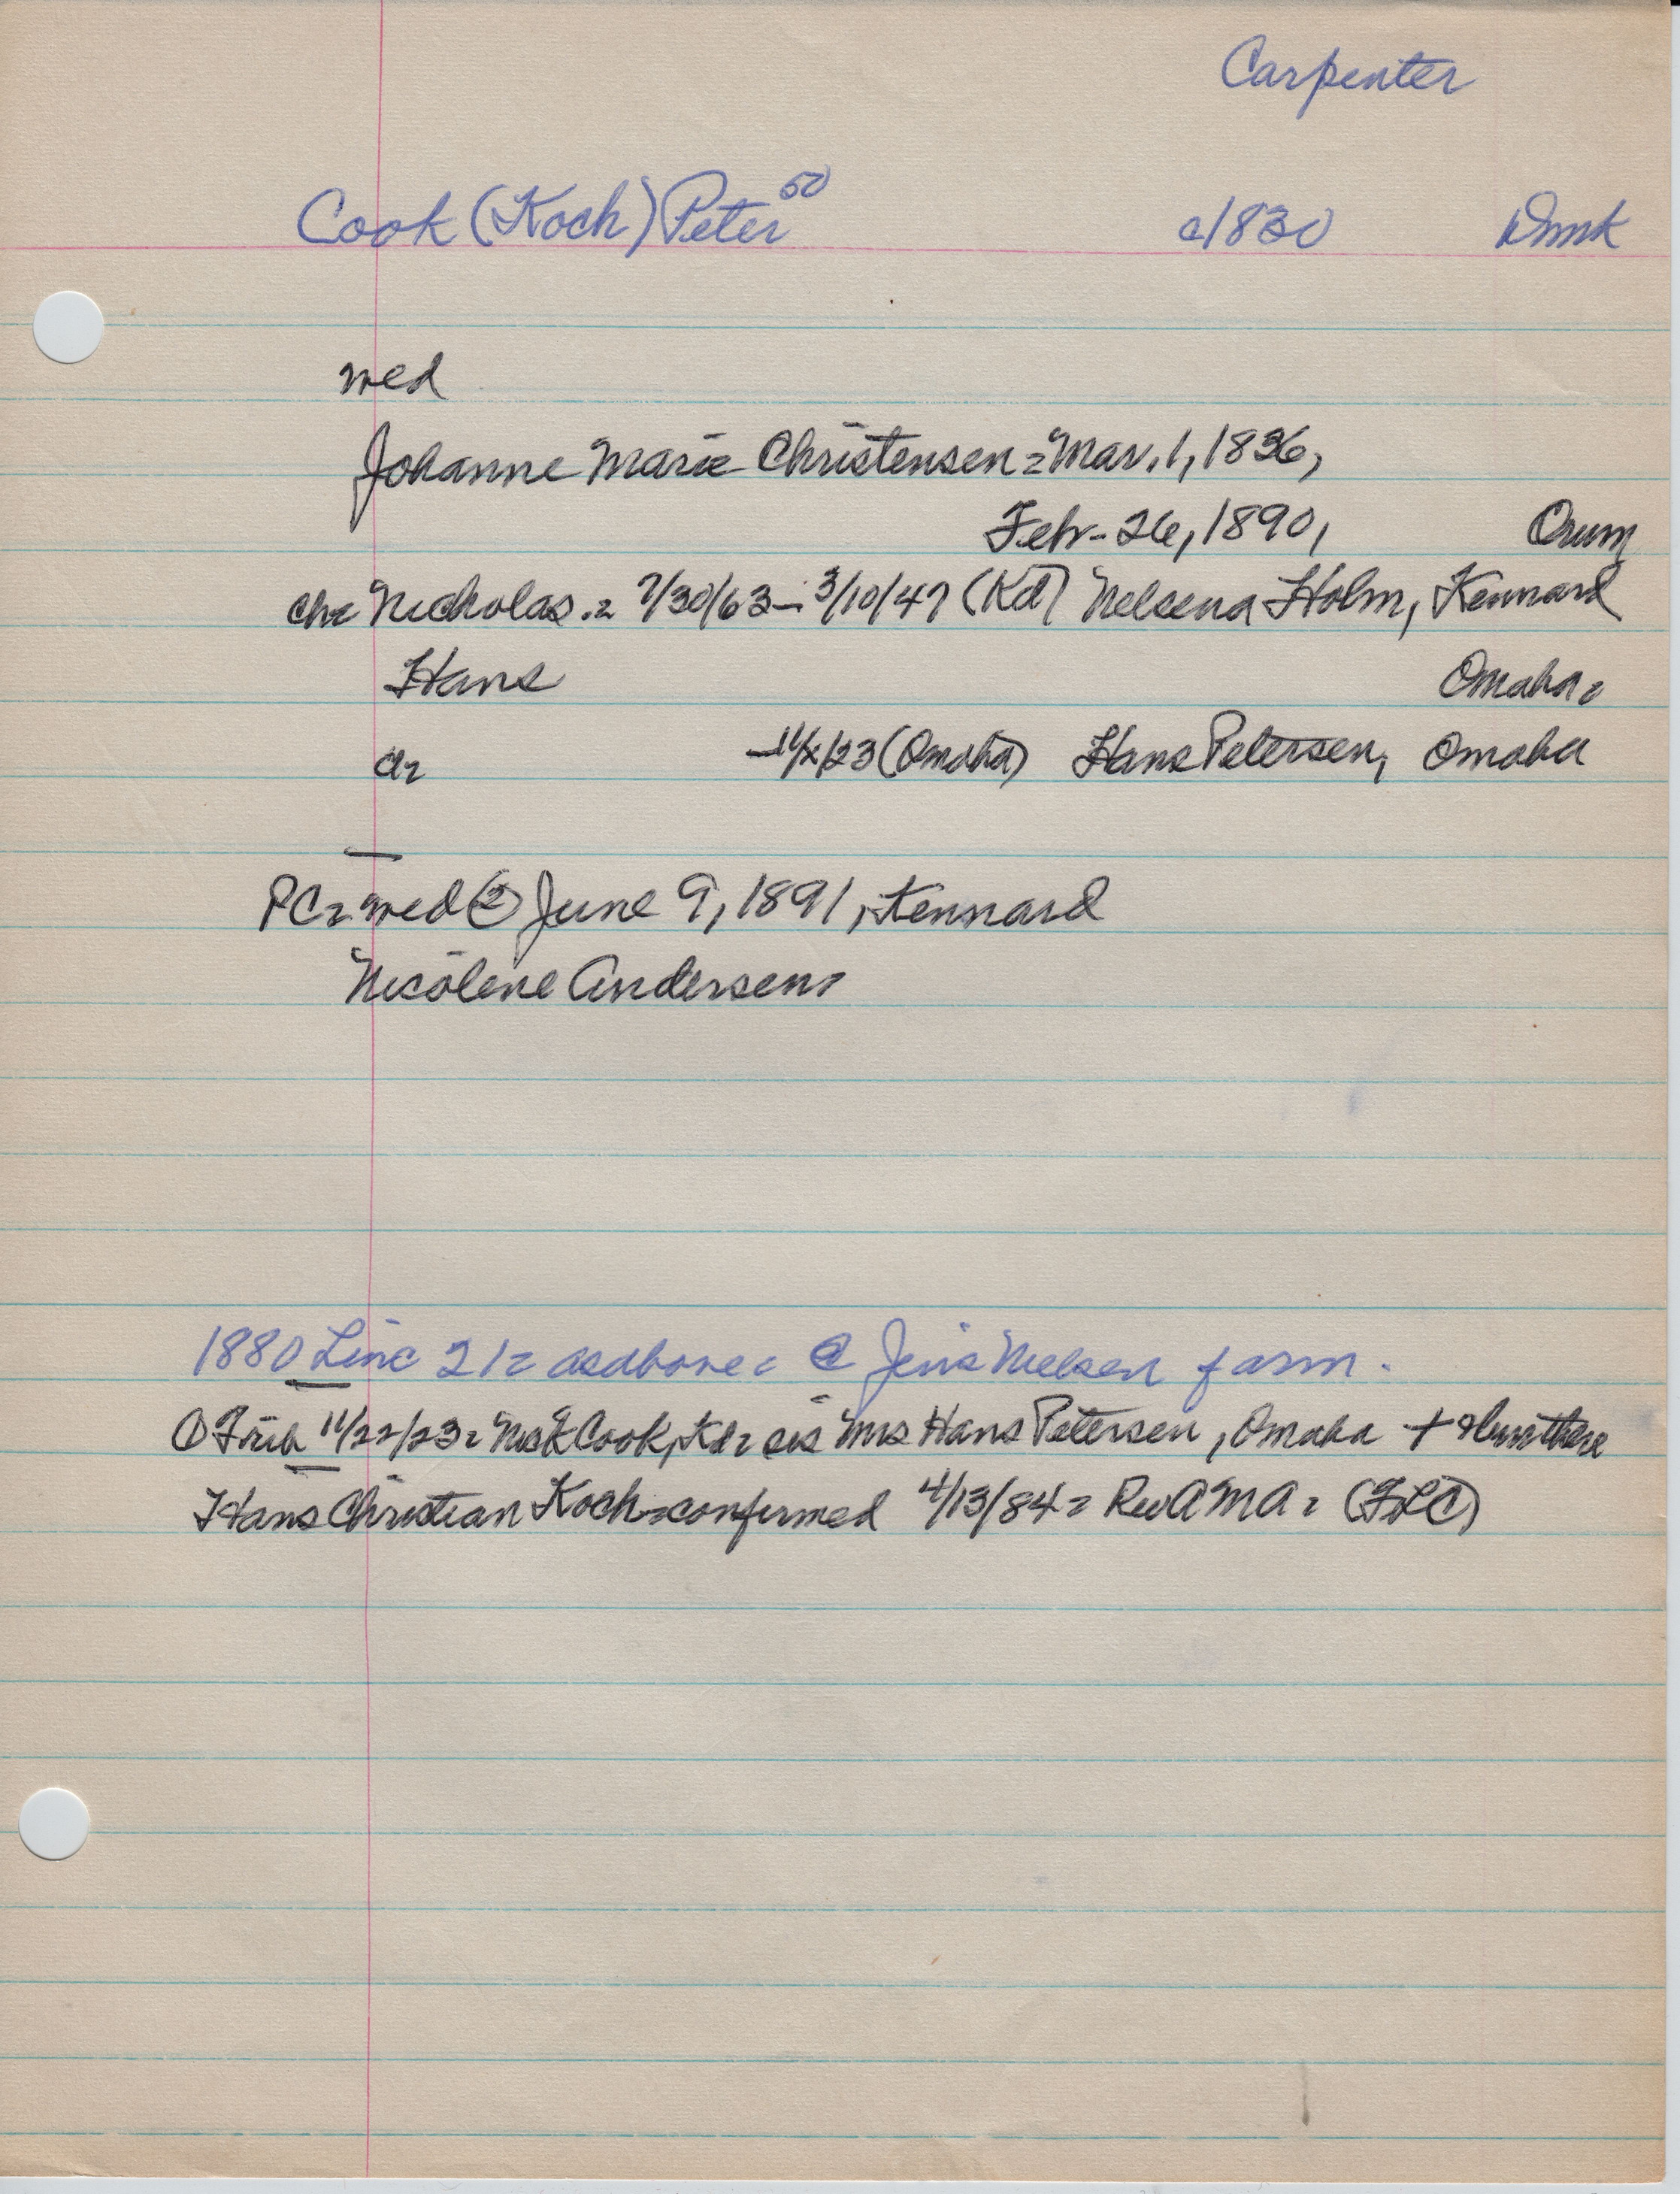 Carpenter
Cook (Koch) Peter 50 c1830 Dmk
med
Johanne Marie Christensen = Mar. 1, 1836,
Feb- 26, 1890, Orum
ch= Nicholas = 7/30/63 - 3/10/47 (Kd) Nelsena Holm, Kennard
Hans Omaha=
d= -11/x/23 (Omaha) Hans Petersen, Omaha
PC= med (2) June 9, 1891, Kennard
Nicolene Andersen=
1880 Linc 21= as above = @ Jens Nielsen farm.
① Trib 11/22/23= Cook, Kd= sis Mrs Hans Petersen, Omaha +
Hans Christian Koch = confirmed 4/13/84= Rev AMA = (FLC)